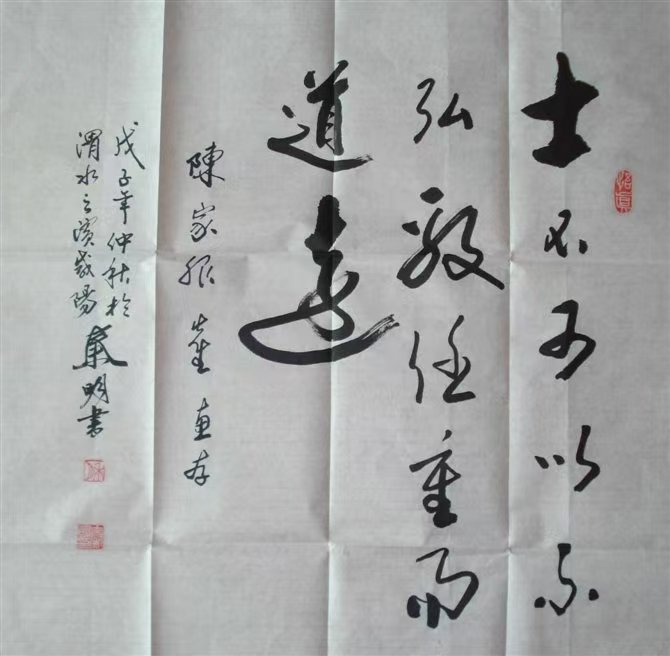 士不可以不
弘毅任重而
道遠
陳家振惠存
戊子年仲秋於
渭水之濱咸陽東明書